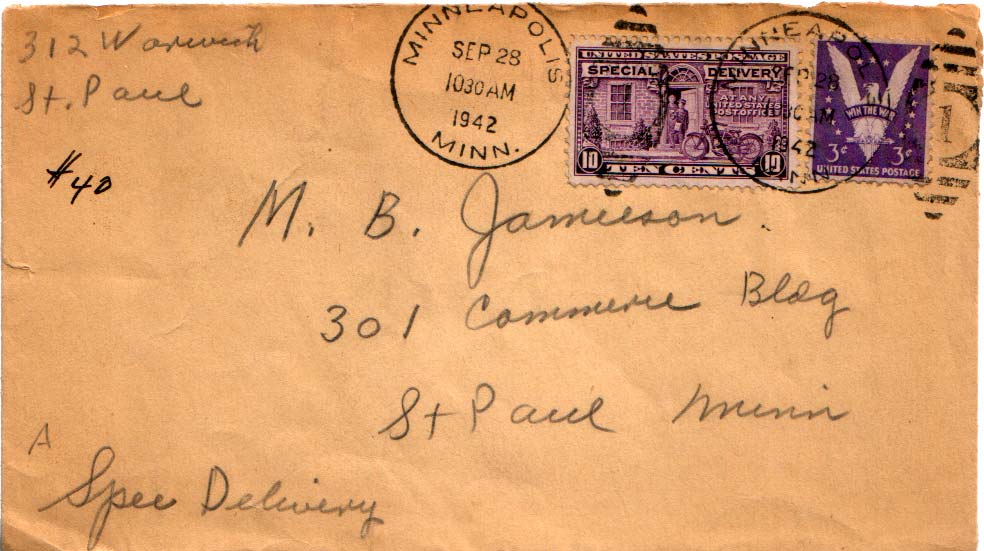 312 Warwick
St. Paul
#40
MINNEAPOLIS
SEP 28
1030 AM
1942
MINN.
UNITED STATES POSTAGE
SPECIAL DELIVERY
AT ANY
UNITED STATES
POST OFFICE
10 TEN CENTS 10
MINNEAPOL
SEP 28
30 AM
1942
MINN
WIN THE WAR
3¢ 3¢
UNITED STATES POSTAGE
1
M. B. Jamieson
301 Commerce Bldg
St Paul Minn
A
Spec Delivery